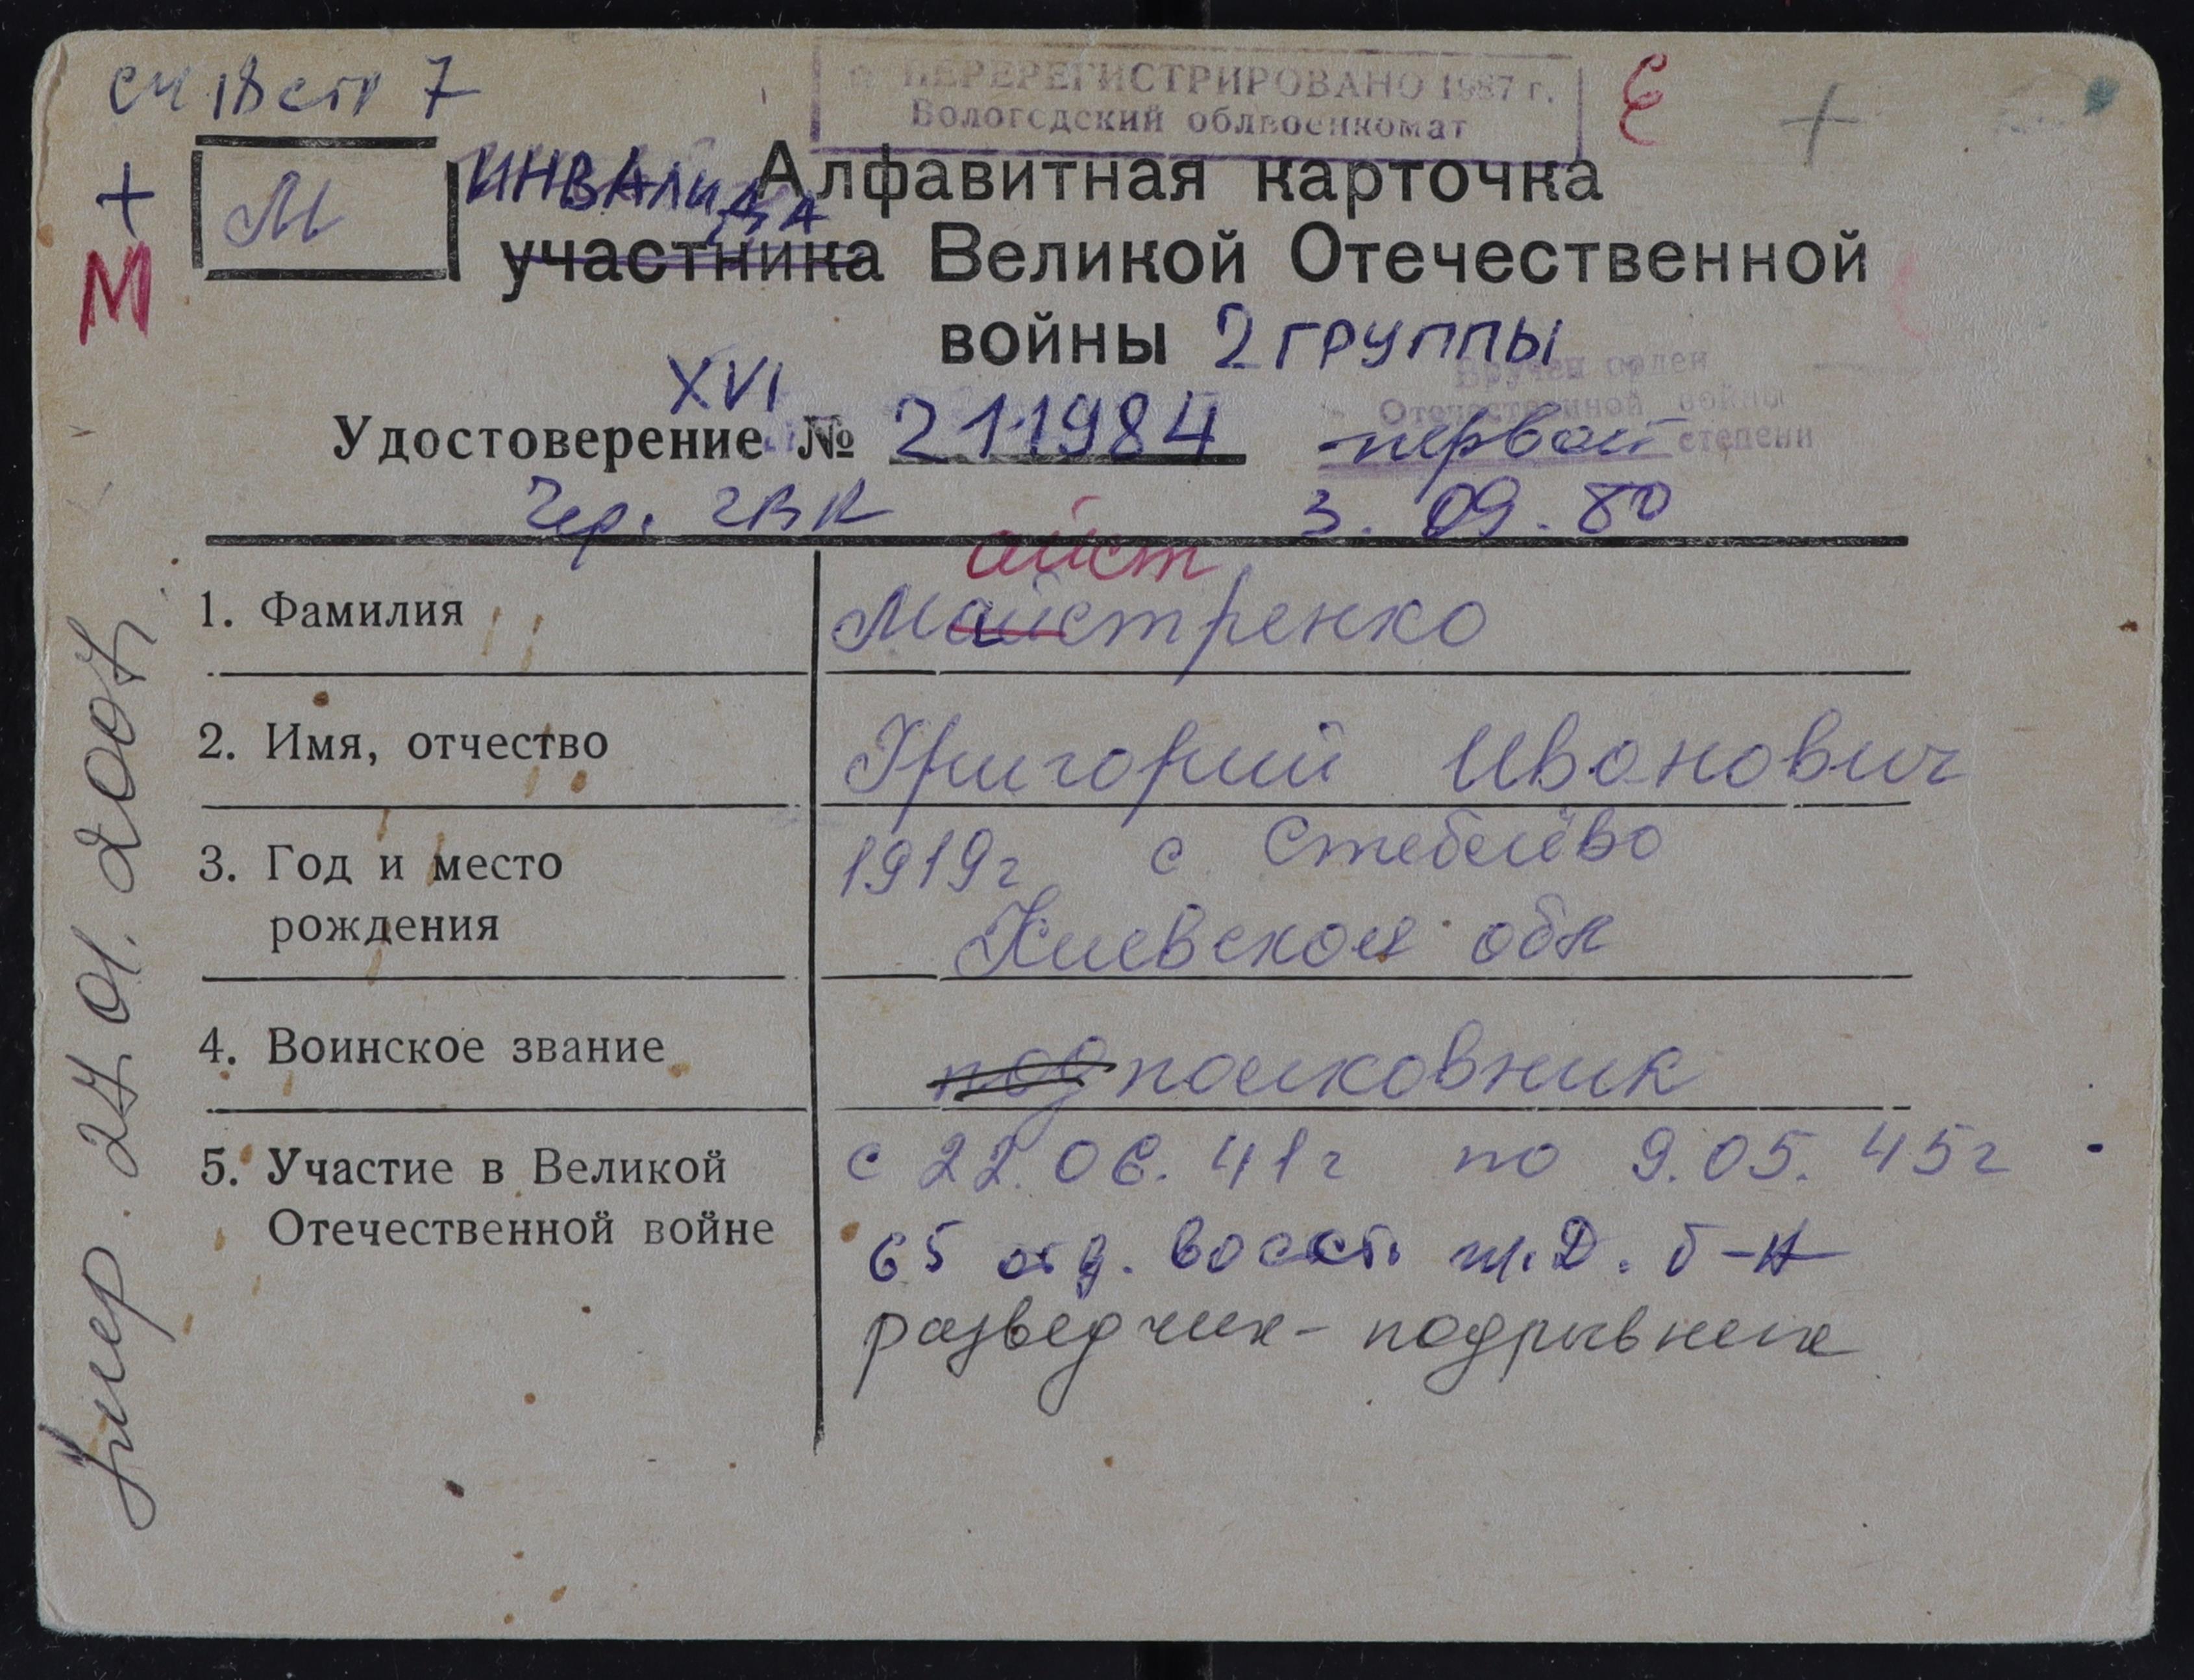 см 18 стр 7
ПЕРЕРЕГИСТРИРОВАНО 1987 г.
Вологодский облвоенкомат
Є +
+
М
М
ИНВАЛИДА
Алфавитная карточка
участника Великой Отечественной
войны 2 ГРУППЫ
Вручен орден
Отечественной войны
первой степени
XVI
Удостоверение № 211984
Чер. ГВК 3.09.80
айст
1. Фамилия Майстренко
2. Имя, отчество Григорий Иванович
3. Год и место рождения 1919г с Стебелёво
Киевской обл
4. Воинское звание подполковник
5. Участие в Великой Отечественной войне с 22.06.41г по 9.05.45г
65 отд. восст. ж.д. б-н
разведчик-подрывник
Умер 27.01.2007